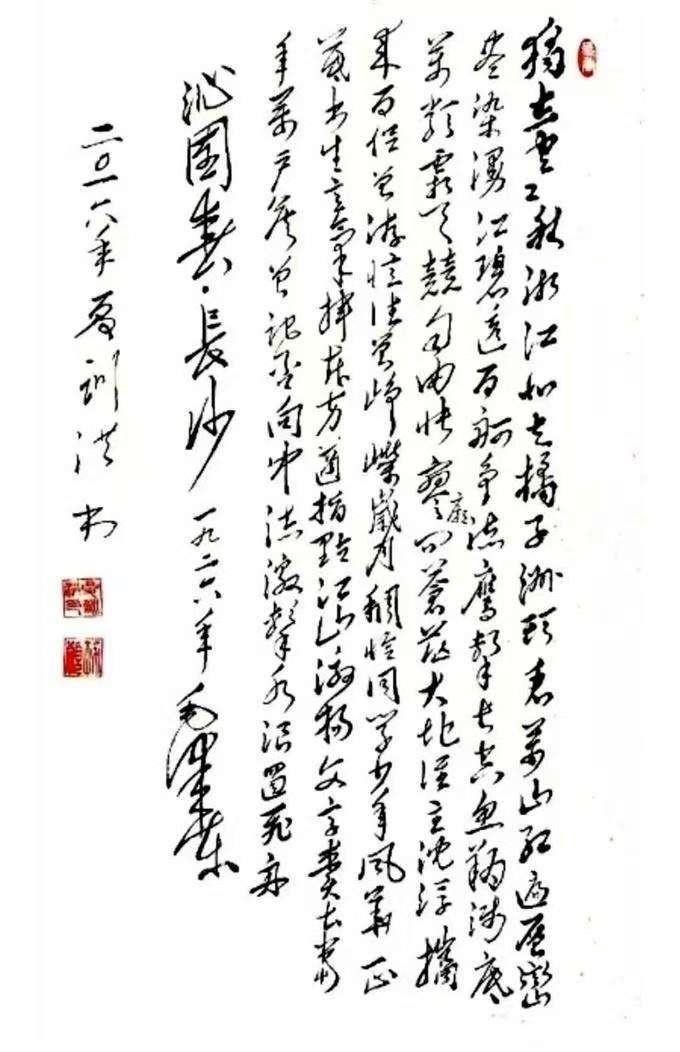 獨立寒秋湘江北去橘子洲頭看萬山紅遍層巒
盡染漫江碧透百舸爭流鷹擊長空魚翔淺底
萬類霜天競自由悵寥廓問蒼茫大地誰主沈浮攜
來百侶曾游憶往昔崢嶸歲月稠恰同學少年風華正
茂書生意氣揮斥方遒指點江山激揚文字糞土當
年萬戶侯曾記否向中流激擊水浪遏飛舟
沁園春·長沙 一九二六年 毛澤東
二〇一六年夏 洪书